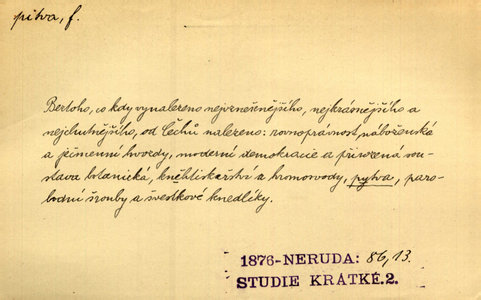 pitva, f.
Bertoho, co kdy vynalezeno nejvznešenějšího, nejkrásnějšího a
nejchutnějšího, od Čechů nalezeno: rovnoprávnost náboženská
a ječmenné hvozdy, moderní demokracie a přirozená sou-
stava botanická, kněhtiskařství a hromovody, pytva, paro-
lodní šrouby a švestkové knedlíky.
1876-NERUDA: 86,13.
STUDIE KRÁTKÉ.2.